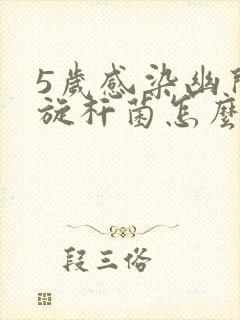 5歲感染幽門
旋杆菌怎麼
段三俗